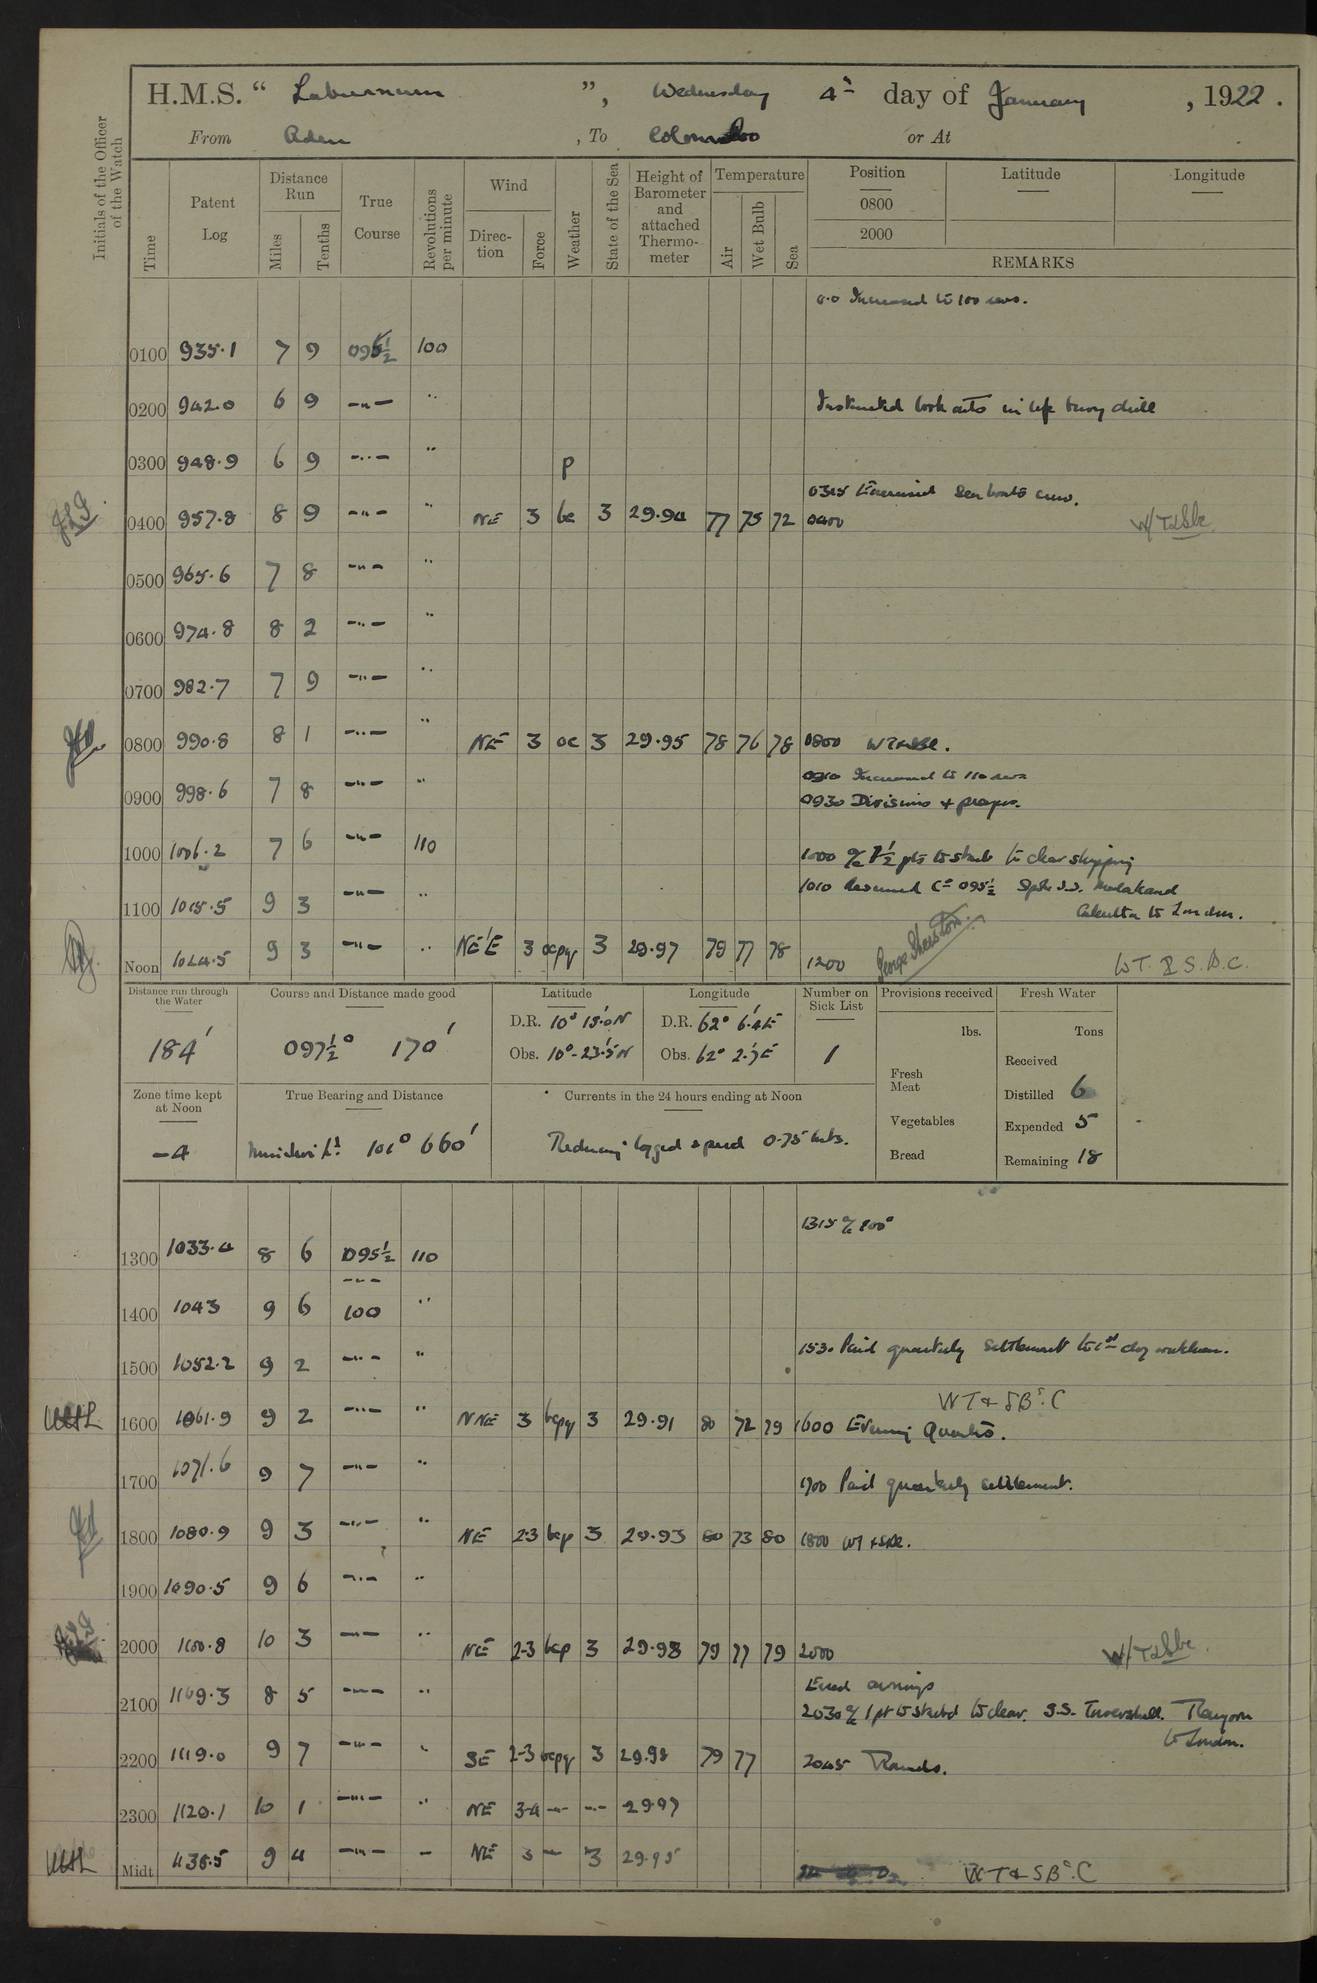 H.M.S. “ Laburnum ”, Wednesday 4th day of January , 1922.
From Aden , To Colombo or At
Initials of the Officer of the Watch
Time Patent Log Distance Run Miles Tenths True Course Revolutions per minute Wind Direction Force Weather State of the Sea Height of Barometer and attached Thermometer Temperature Air Wet Bulb Sea Position 0800 2000 Latitude Longitude
REMARKS
0.0 Increased to 100 revs.
0100 935.1 7 9 095½ 100
0200 942.0 6 9 -"- " Instructed look outs in life buoy drill
0300 948.9 6 9 -"- " p
0315 Exercised Sea boats crew.
0400 957.8 8 9 -"- " NE 3 bc 3 29.94 77 75 72 0400 W/T & Sbc
0500 965.6 7 8 -"- "
0600 974.8 8 2 -"- "
0700 982.7 7 9 -"- "
0800 990.8 8 1 -"- " NE 3 oc 3 29.95 78 76 78 0800 WT & SBC.
0910 Increased to 110 revs
0900 998.6 7 8 -"- " 0930 Divisions & prayers.
1000 1006.2 7 6 -"- 110 1000 a/c 1½ pts to starb to clear shipping
1010 Resumed Co 095½ Spke S.S. Malakand
1100 1015.5 9 3 -"- " Calcutta to London.
Noon 1024.5 9 3 -"- " NE'E 3 ocpq 3 29.97 79 77 78 1200 WT & S.B.C.
Distance run through the Water Course and Distance made good Latitude Longitude Number on Sick List Provisions received Fresh Water
184' 097½° 170' D.R. 10° 15'.0 N D.R. 62° 6'.4 E 1 lbs. Tons
Obs. 10° 23'.5 N Obs. 62° 2'.7 E Fresh Meat Received
Zone time kept at Noon True Bearing and Distance Currents in the 24 hours ending at Noon Distilled 6
Vegetables Expended 5
-4 101° 660' Reducing logged speed 0.75 kts. Bread Remaining 18
1315 a/c 100°
1300 1033.4 8 6 095½ 110
-"-
1400 1043 9 6 100 "
1500 1052.2 9 2 -"- " 1530 Paid quarterly settlement to 1st dog watchmen.
WT & SBC
1600 1061.9 9 2 -"- " NNE 3 bcpq 3 29.91 80 72 79 1600 Evening Quarters.
1700 1071.6 9 7 -"- " 1700 Paid quarterly settlement.
1800 1080.9 9 3 -"- " NE 2-3 bcp 3 29.93 80 73 80 1800 WT & SBC.
1900 1090.5 9 6 -"- "
2000 1100.8 10 3 -"- " NE 2-3 bcp 3 29.98 79 77 79 2000 W/T & Sbc.
Furled awnings
2100 1109.3 8 5 -"- " 2030 a/c 1 pt to starbd to clear. S.S. Rangoon
to London.
2200 1119.0 9 7 -"- " SE 2-3 bcpq 3 29.98 79 77 2045 Rounds.
2300 1129.1 10 1 -"- " NE 3-4 -"- -"- 29.97
Midt 1138.5 9 4 -"- " NE 3 - 3 29.95 WT & SBC